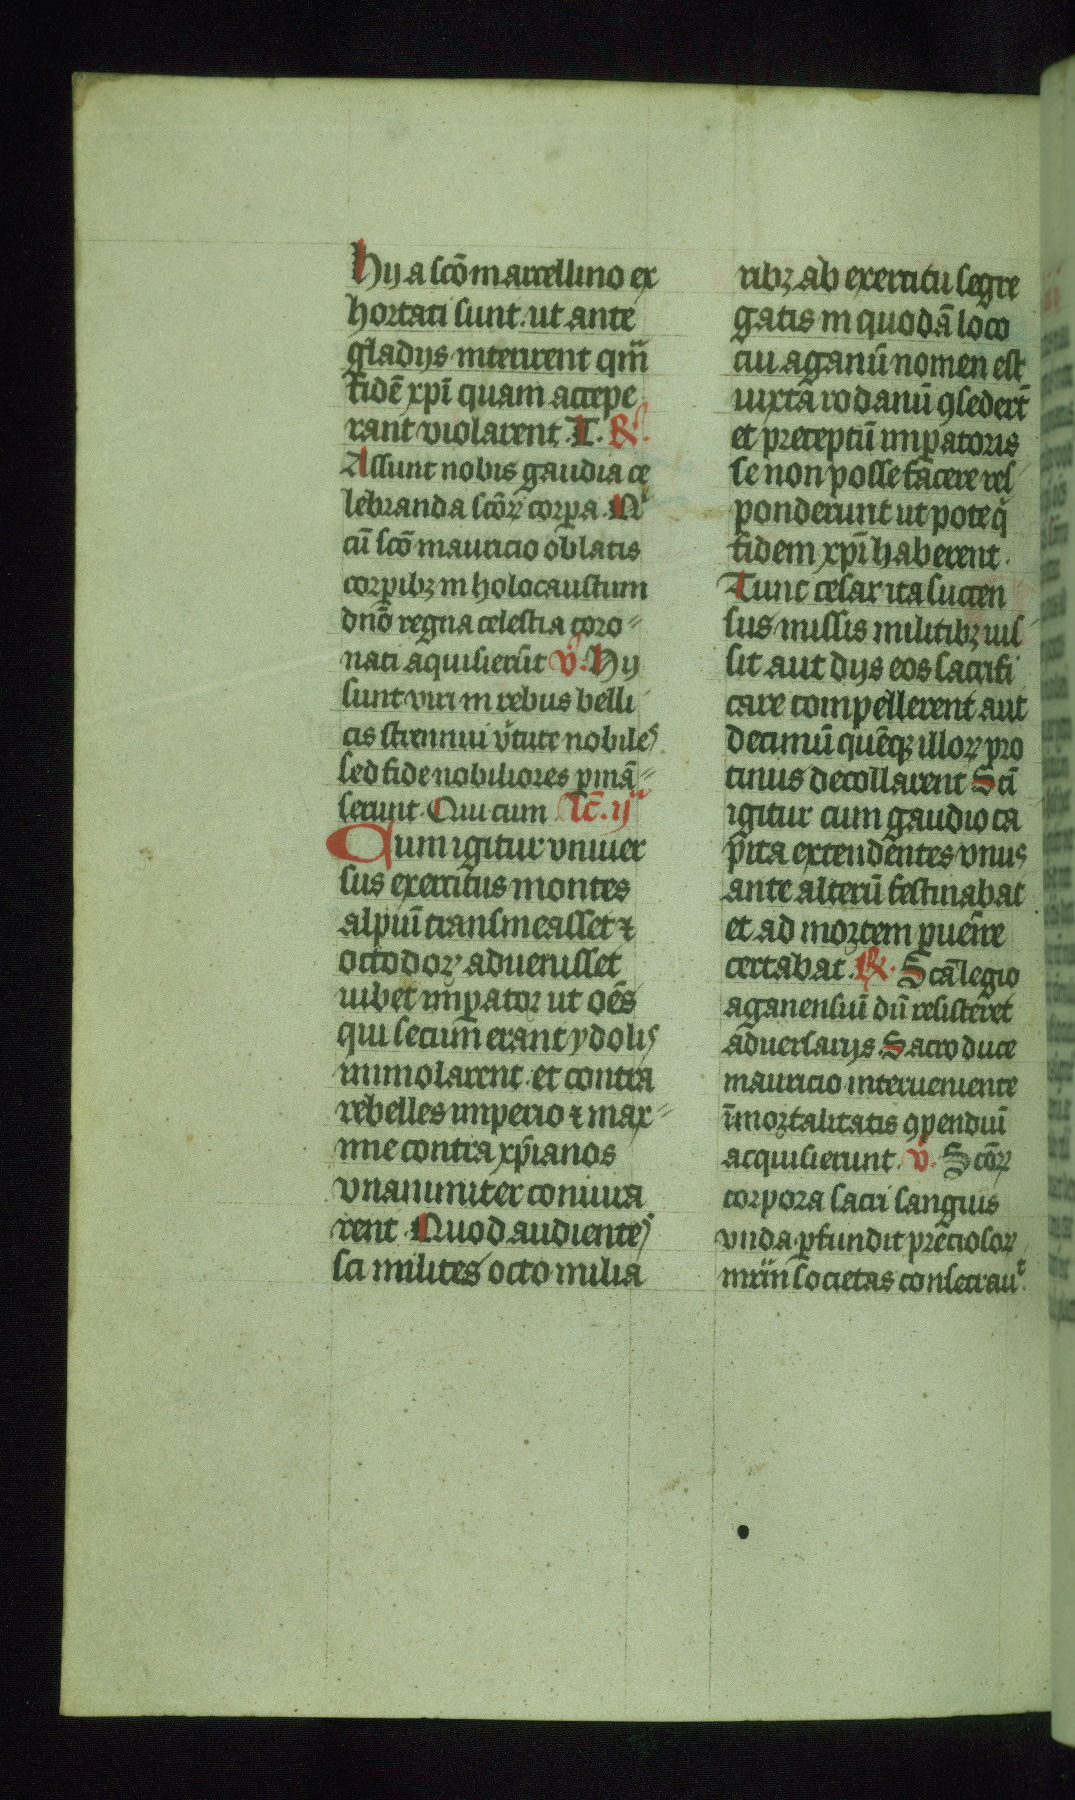 Hij a scō marcellino ex
hortati sunt. ut ante
gladijs interirent qm̄
fidē xp̄i quam accepe
rant violarent. T. R̸.
Assunt nobis gaudia ce
lebranda scōꝝ corꝑa. N
cū scō mauricio oblatis
corꝑibꝫ in holocaustum
dnō regna celestia coro⸗
nati aquisierūt v̄. Hij
sunt viri in rebus belli
cis strennui v̄tute nobiles
sed fide nobiliores ꝑmā⸗
serunt. Qui cum Lc̄. ij
Cum igitur vniuer
sus exercitus montes
alpiū transmeasset ⁊
octodoꝝ aduenisset
iubet imꝑator ut oēs
qui secum erant ydolis
immolarent. et contra
rebelles imperio ⁊ max⸗
ime contra xp̄ianos
vnanimiter coniura
rent. Quod audientes
sci milites octo milia
ribꝫ ab exercitu segre
gatis in quodā loco
cui aganū nomen est
iuxta rodanū ꝯsederūt
et preceptū imꝑatoris
se non posse facere res
ponderunt ut pote q̄
fidem xp̄i haberent.
Tunc cesar ira succen
sus missis militibꝫ ius
sit aut dijs eos sacrifi
care compellerent aut
decimū quēqꝫ illoꝝ pro
tinus decollarent Sci
igitur cum gaudio ca
pita extendentes vnus
ante alterū festinabat
et ad mortem ꝑuenire
certabat. R̸. Scā legio
aganensiū dū resisteret
aduersarijs. Sacro duce
mauricio interueniente
īmortalitatis ꝯpendiū
acquisierunt. v̄. Scōꝝ
corpora sacri sanguis
vnda ꝑfundit preciosoꝝ
mr̄iū societas consecrauᵗ.